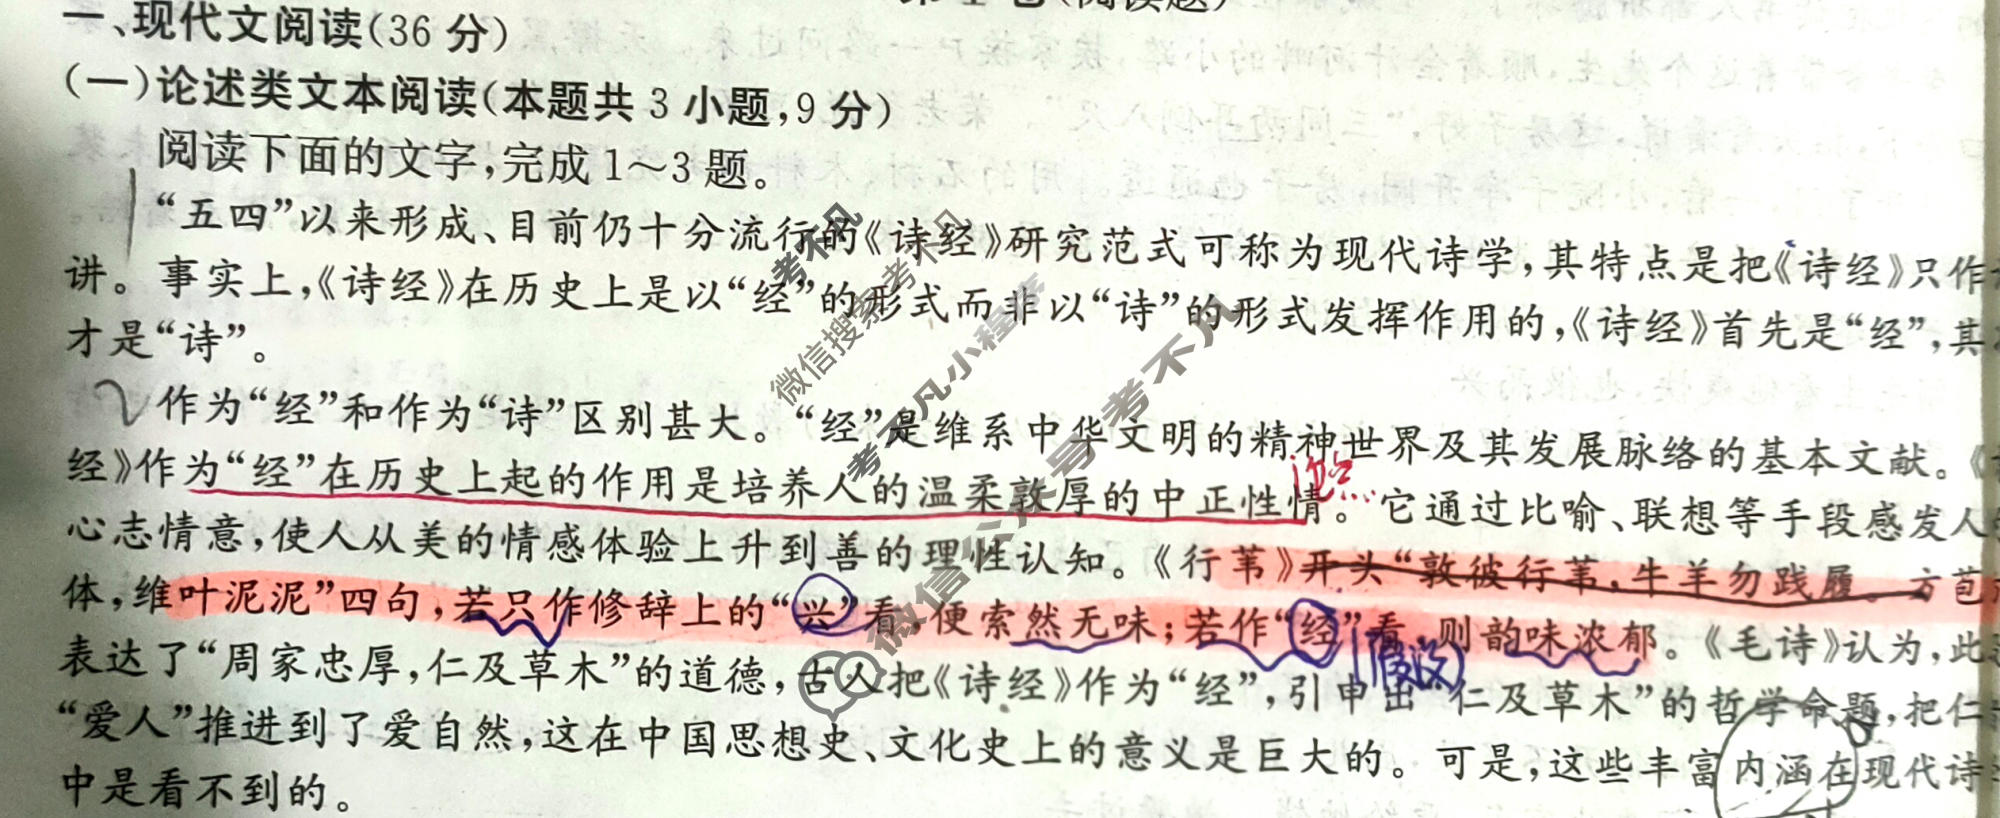 (阅读题)
一、现代文阅读(36分)
(一)论述类文本阅读(本题共3小题,9分)
阅读下面的文字,完成1～3题。
“五四”以来形成、目前仍十分流行的《诗经》研究范式可称为现代诗学,其特点是把《诗经》只作
讲。事实上,《诗经》在历史上是以“经”的形式而非以“诗”的形式发挥作用的,《诗经》首先是“经”,其
才是“诗”。
作为“经”和作为“诗”区别甚大。“经”是维系中华文明的精神世界及其发展脉络的基本文献。《
经》作为“经”在历史上起的作用是培养人的温柔敦厚的中正性情。它通过比喻、联想等手段感发人
心志情意,使人从美的情感体验上升到善的理性认知。《行苇》开头“敦彼行苇,牛羊勿践履。方苞
体,维叶泥泥”四句,若只作修辞上的“兴”看,便索然无味;若作“经”看,则韵味浓郁。《毛诗》认为,此
表达了“周家忠厚,仁及草木”的道德,古人把《诗经》作为“经”,引申出“仁及草木”的哲学命题,把仁
“爱人”推进到了爱自然,这在中国思想史、文化史上的意义是巨大的。可是,这些丰富内涵在现代诗
中是看不到的。
考不凡
微信搜索考不凡
考不凡小程序
微信公众号考不凡